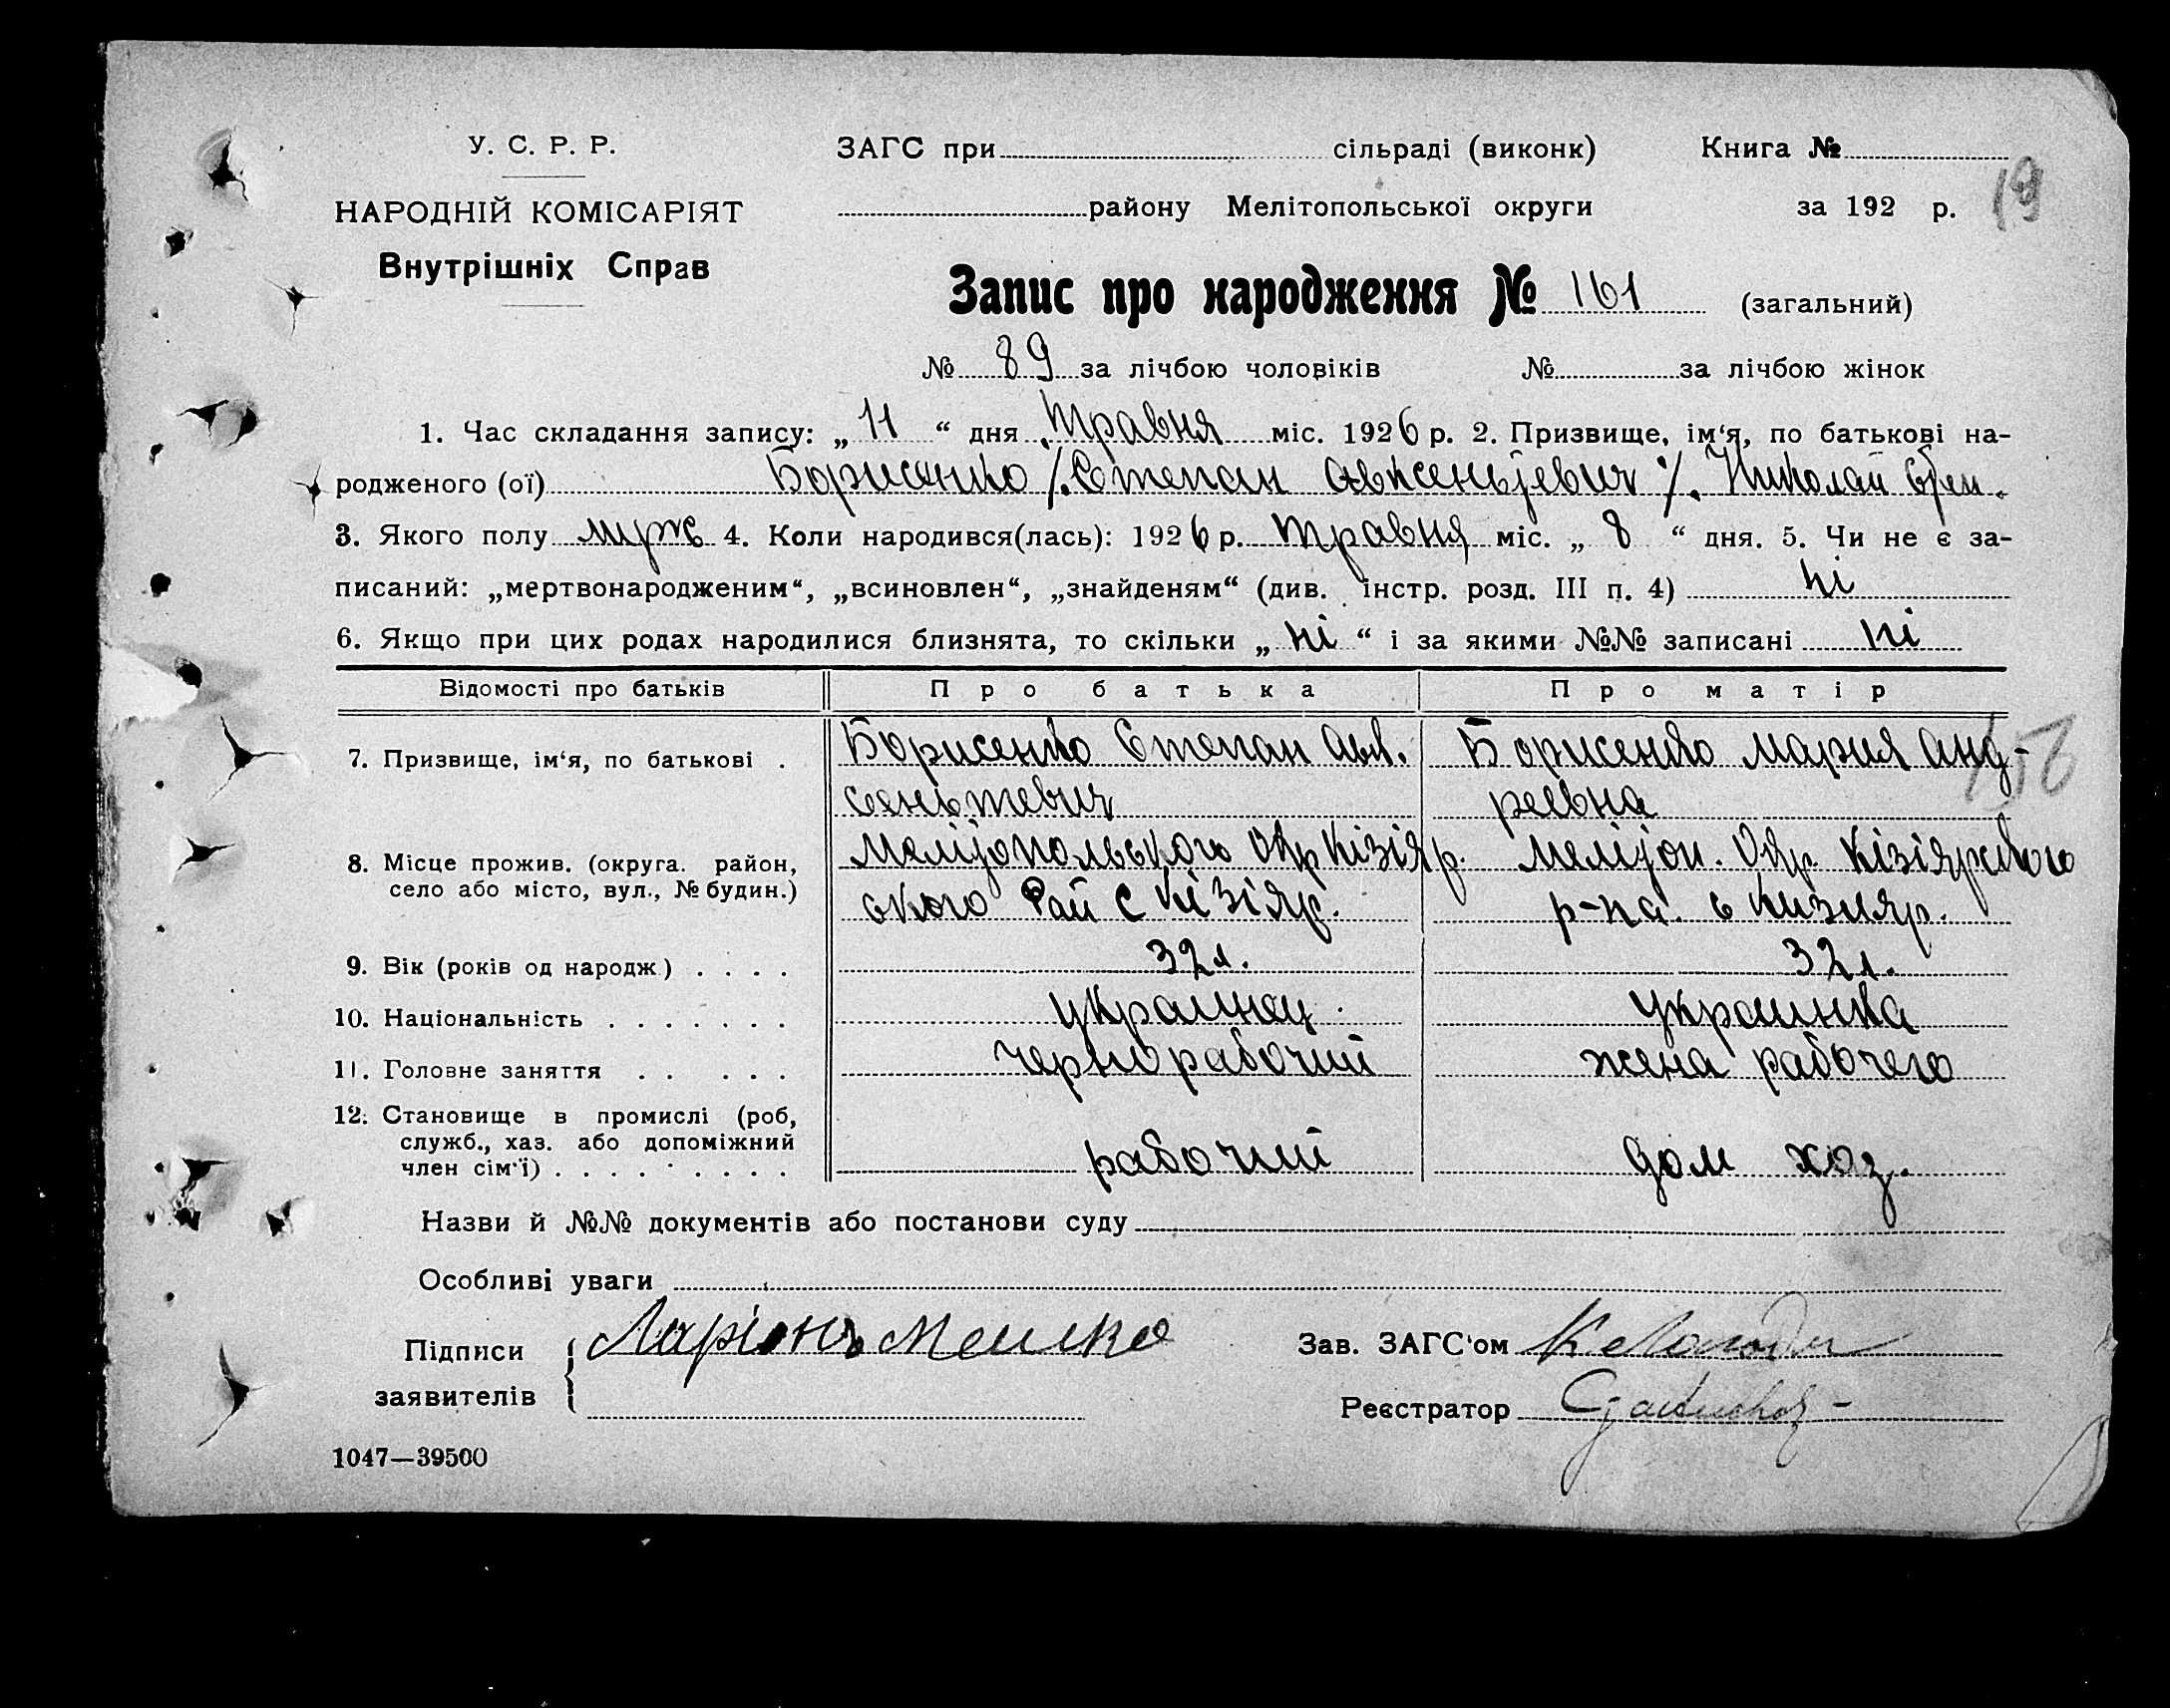 У. С. Р. Р.
НАРОДНІЙ КОМІСАРІЯТ
Внутрішніх Справ
ЗАГС при сільраді (виконк) Книга №
району Мелітопольської округи за 192 р. 19
Запис про народження № 161 (загальний)
№ 89 за лічбою чоловіків № за лічбою жінок
1. Час складання запису: „ 11 “ дня Травня міс. 1926 р. 2. Призвище, ім‘я, по батькові на-
родженого (ої) Борисенко /. Степан Авксеньтевич /. Николай
3. Якого полу муж 4. Коли народився(лась): 1926 р. травня міс. „ 8 “ дня. 5. Чи не є за-
писаний: „мертвонародженим“, „всиновлен“, „знайденям“ (див. інстр. розд. III п. 4) ні
6. Якщо при цих родах народилися близнята, то скільки „ ні “ і за якими №№ записані ні
Відомості про батьків Про батька Про матір
7. Призвище, ім‘я, по батькові . Борисенко Степан Авк. Борисенко Мария Анд-
сеньтевич реевна
8. Місце прожив. (округа. район, Мелітопольського Окр Кізіяр. Мелітоп. Окр. Кізіярского
село або місто, вул., № будин.) ского Рай с Кізіяр. р-на. с Кизияр.
9. Вік (років од народж) . . . . 32 л. 32 л.
10. Національність . . . . . . . украинец. украинка
11. Головне заняття . . . . . чернорабочий жена рабочего
12. Становище в промислі (роб,
служб., хаз. або допоміжний
член сім‘ї) . . . . . . . . . рабочий дом хоз.
Назви й №№ документів або постанови суду
Особливі уваги
Підписи Ларіонъ Мешко Зав. ЗАГС‘ом
заявителів Реєстратор
1047—39500